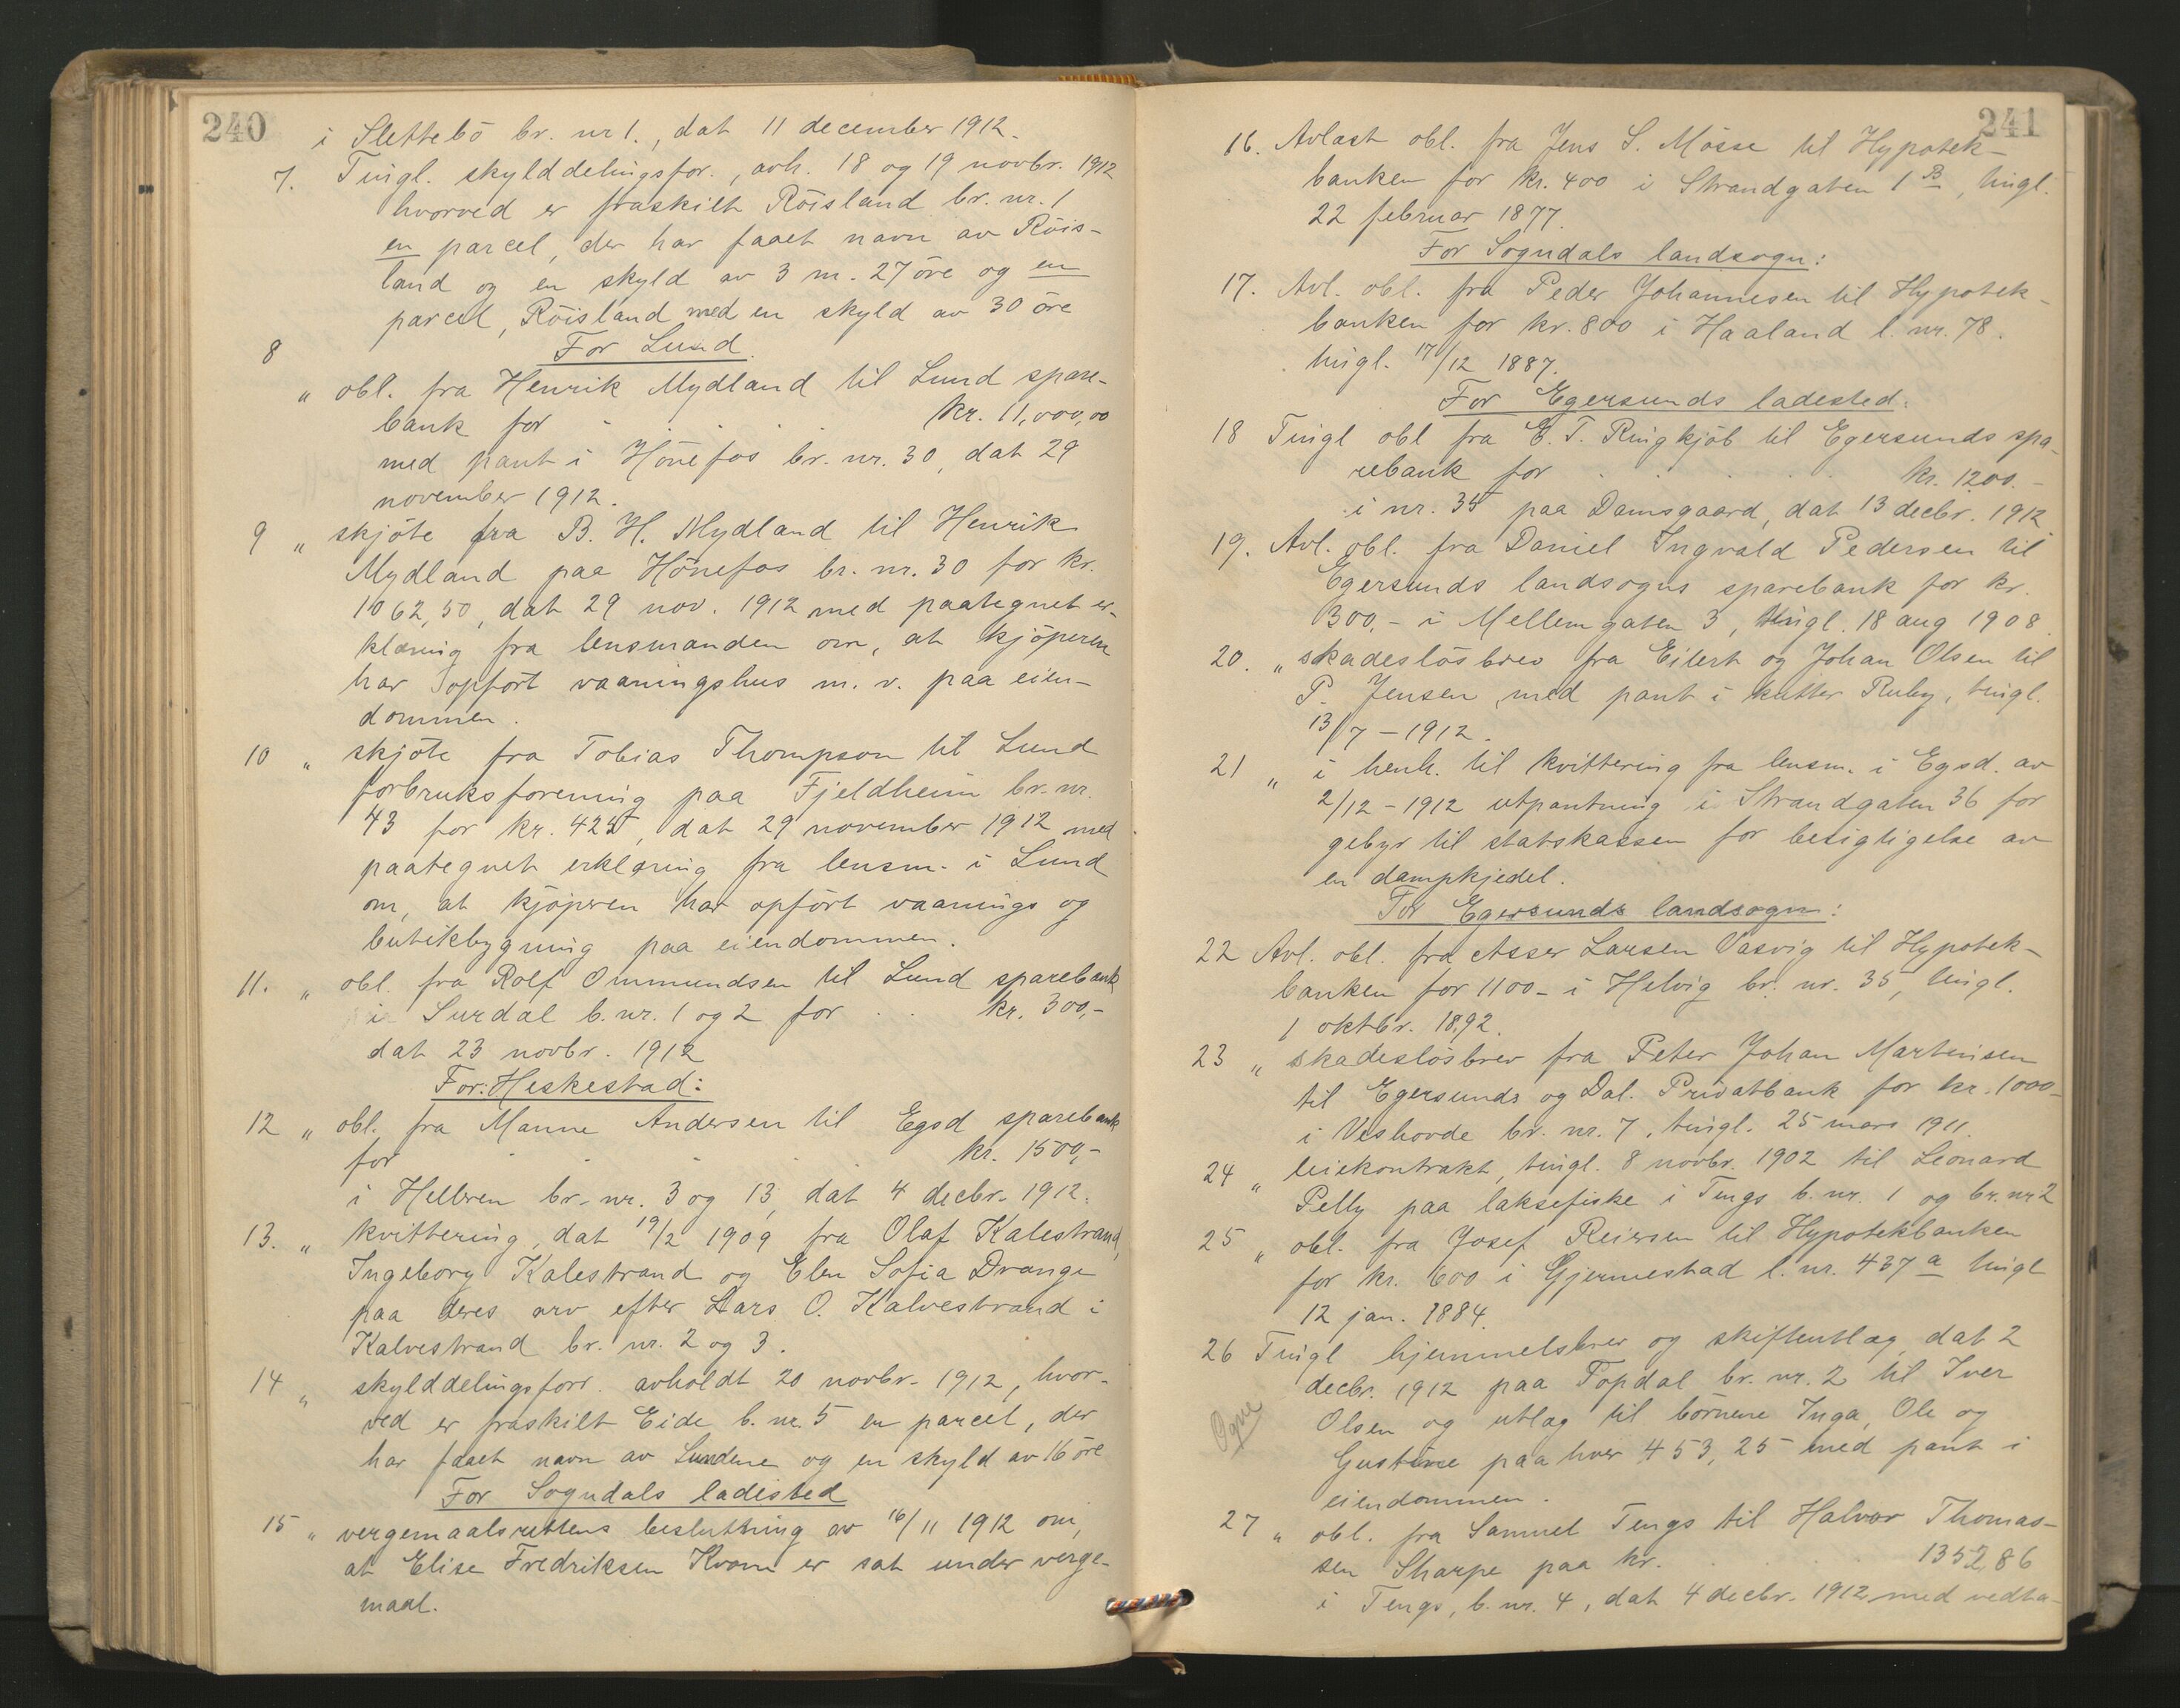 240
i Slettebö br. nr 1., dat 11 december 1912.
7. Tingl. skylddelingsfor., avh. 18 og 19 novbr. 1912
hvorved er fraskilt Röisland br. nr. 1
en parcel, der har faaet navn av Röis-
land og en skyld av 3 m. 27 öre og en
parcel, Röisland med en skyld av 30 öre
For Lund.
8 „ obl. fra Henrik Mydland til Lund spare-
bank for - . . . kr. 11,000,00
med pant i Hönefos br. nr. 30, dat 29
november 1912.
9 „ skjöte fra B. H. Mydland til Henrik
Mydland paa Hönefos br. nr. 30 for kr.
1062,50, dat 29 nov. 1912 med paategnet er-
klæring fra lensmanden om, at kjöperen
har opfört vaaningshus m. v. paa eien-
dommen.
10 „ skjöte fra Tobias Thompson til Lund
forbruksforening paa Fjeldheim br. nr.
43 for kr. 425, dat 29 november 1912 med
paategnet erklæring fra lensm. i Lund
om, at kjöperen har opfört vaanings og
butikbygning paa eiendommen.
11. „ obl. fra Rolf Ommundsen til Lund sparebank
i Surdal b. nr. 1 og 2 for . . kr. 300,-
dat 23 novbr. 1912
For: Heskestad:
12 „ obl. fra Manne Andersen til Egsd sparebank
for - - - - kr. 1500,-
i Helleren br. nr. 3 og 13, dat 4 decbr. 1912.
13. „ kvittering, dat 19/2 1909 fra Olaf Kalestrand,
Ingeborg Kalestrand og Elen Sofia Drange
paa deres arv efter Lars O. Kalvestrand i
Kalvestrand br. nr. 2 og 3.
14 „ skylddelingsforr. avholdt 20 novbr. 1912, hvor-
ved er fraskilt Eide b. nr. 5 en parcel, der
har faaet navn av Lundene og en skyld av 16 öre
For Sogndals ladested
15 „ vergemaalsrettens beslutning av 16/11 1912 om,
at Elise Fredriksen Kvam er sat under verge-
maal.
241
16. Avlæst obl. fra Jens S. Mösse til Hypotek-
banken for kr. 400 i Strandgaten 1 B, tingl.
22 februar 1877.
For Sogndals landsogn:
17. Avl. obl. fra Peder Johannesen til Hypotek-
banken for kr. 800 i Haaland l. nr. 78.
tingl. 17/12 1887.
For Egersunds ladested.
18 Tingl obl fra E. T. Ringkjöb til Egersunds spa-
rebank for . . . . . kr. 1200.-
i nr. 35 paa Damsgaard, dat 13 decbr. 1912
19. Avl. obl. fra Daniel Ingvald Pedersen til
Egersunds landsogns sparebank for kr.
300,- i Mellemgaten 3, tingl. 18 aug 1908.
20. „ skadeslösbrev fra Eilert og Johan Olsen til
P. Jensen med pant i kutter Ruby, tingl.
13/7 - 1912.
21 „ i henh. til kvittering fra lensm. i Egsd. av
2/12 - 1912 utpantning i Strandgaten 36 for
gebyr til statskassen for besigtigelse av
en dampkjedel.
For Egersunds landsogn:
22 Avl. obl. fra Asser Larsen Vasvig til Hypotek-
banken for 1100 - i Helvig br. nr. 35, tingl.
1 oktbr. 1892.
23 „ skadeslösbrev fra Peter Johan Martinsen
til Egersunds og Dal. Privatbank for kr. 1000-
i Veshovde br. nr. 7, tingl. 25 mars 1911.
24 „ leiekontrakt, tingl. 8 novbr. 1902 til Leonard
Pelly paa laksefiske i Tengs b. nr. 1 og br. nr 2
25 „ obl. fra Josef Reiersen til Hypotekbanken
for kr. 600 i Gjermestad l. nr. 437 a tingl
12 jan. 1884.
26 Tingl hjemmelsbrev og skifteutlæg, dat 2
decbr. 1912 paa Topdal br. nr. 2 til Iver
Ogne
Olsen og utlæg til börnene Inga, Ole og
Gustine paa hver 453,25 med pant i
eiendommen.
27 „ obl. fra Samuel Tengs til Halvor Thomas-
sen Skarpe paa kr. . . . . 1352,86
i Tengs, b. nr. 4, dat 4 decbr. 1912 med vedta-